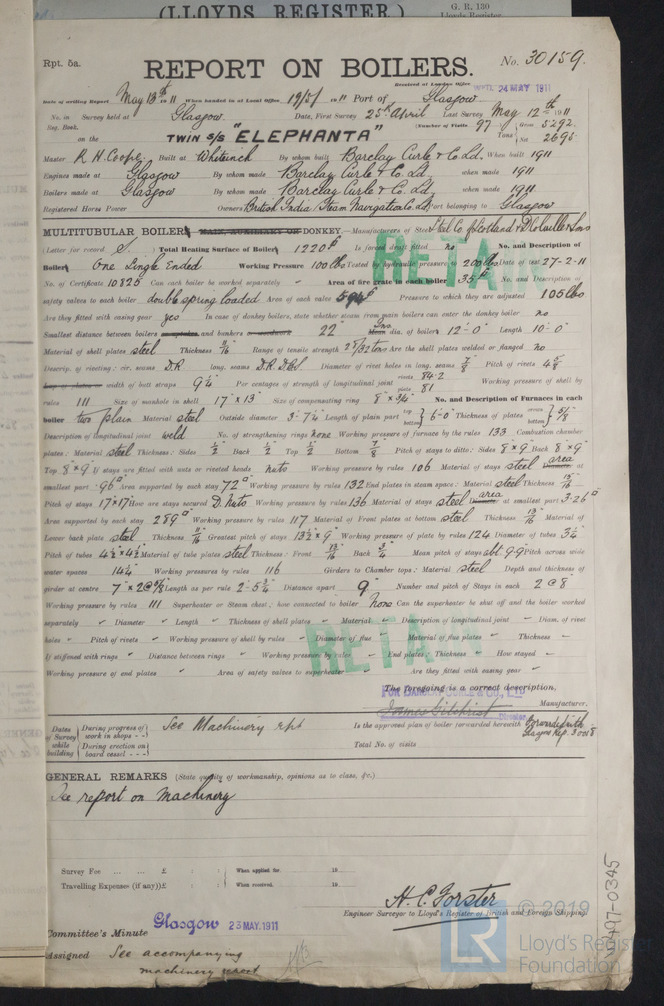 (LLOYDS REGISTER)
G. R. 130
Lloyds Register
Rpt. 5a.
REPORT ON BOILERS.
No. 30159.
Received at London Office
WPTL 24 MAY 1911
Date of writing Report May 13th 1911 When handed in at Local Office 19/5/1911 Port of Glasgow
No. in Survey held at Glasgow. Date, First Survey 25th April Last Survey May 12th 1911
Reg. Book. (Number of Visits 97 Gross 5292
on the TWIN S/S "ELEPHANTA" Tons Net 2695
Master R. H. Coope. Built at Whiteinch By whom built Barclay Curle & Co. Ld. When built 1911
Engines made at Glasgow By whom made Barclay Curle & Co. Ld. when made 1911
Boilers made at Glasgow By whom made Barclay Curle & Co. Ld. when made 1911
Registered Horse Power Owners British India Steam Navigation Co. Ld. Port belonging to Glasgow
MULTITUBULAR BOILERS MAIN, AUXILIARY OR DONKEY.—Manufacturers of Steel Steel Co of Scotland & D. Colville & Sons
(Letter for record S.) Total Heating Surface of Boilers 1220 Is forced draft fitted no No. and Description of
Boilers One Single Ended Working Pressure 100 lbs Tested by hydraulic pressure to 200 lbs Date of test 27-2-11
No. of Certificate 10825 Can each boiler be worked separately - Area of fire grate in each boiler 35 No. and Description of
safety valves to each boiler double spring loaded Area of each valve 5.94 Pressure to which they are adjusted 105 lbs
Are they fitted with easing gear yes In case of donkey boilers, state whether steam from main boilers can enter the donkey boiler no
Smallest distance between boilers or uptakes and bunkers or woodwork 22" Ins. Mean dia. of boilers 12'-0" Length 10'-0"
Material of shell plates steel Thickness 11/16" Range of tensile strength 28/32 tons Are the shell plates welded or flanged no
Descrip. of riveting: cir. seams D.R. long. seams D.R. D.B.S. Diameter of rivet holes in long. seams 7/8" Pitch of rivets 4 5/8"
Lap of plates or width of butt straps 9 1/4 Per centages of strength of longitudinal joint rivets 84.2 plate 81 Working pressure of shell by
rules 111 Size of manhole in shell 17" x 13" Size of compensating ring 8" x 3/4" No. and Description of Furnaces in each
boiler two plain Material steel Outside diameter 3'-7 1/4 Length of plain part top bottom 6'-0" Thickness of plates crown bottom 5/8"
Description of longitudinal joint weld No. of strengthening rings none Working pressure of furnace by the rules 133 Combustion chamber
plates: Material steel Thickness: Sides 1/2" Back 1/2" Top 1/2" Bottom 7/8" Pitch of stays to ditto: Sides 8" x 9" Back 8" x 9"
Top 8" x 9" If stays are fitted with nuts or riveted heads nuts Working pressure by rules 106 Material of stays steel Diameter area at
smallest part .96 Area supported by each stay 72 Working pressure by rules 132 End plates in steam space: Material steel Thickness 13/16
Pitch of stays 17" x 17" How are stays secured D. Nuts Working pressure by rules 136 Material of stays steel Diameter area at smallest part 3.26
Area supported by each stay 289 Working pressure by rules 117 Material of Front plates at bottom steel Thickness 13/16" Material of
Lower back plate steel Thickness 11/16" Greatest pitch of stays 13 1/2 x 9" Working pressure of plate by rules 124 Diameter of tubes 3 1/4
Pitch of tubes 4 1/2 x 4 1/2 Material of tube plates steel Thickness: Front 13/16" Back 3/4" Mean pitch of stays abt 9.9 Pitch across wide
water spaces 14 1/4" Working pressures by rules 116 Girders to Chamber tops: Material steel. Depth and thickness of
girder at centre 7" x 2 @ 5/8 Length as per rule 2'-5 3/4" Distance apart 9" Number and pitch of Stays in each 2 @ 8
Working pressure by rules 111 Superheater or Steam chest; how connected to boiler None Can the superheater be shut off and the boiler worked
separately " Diameter " Length " Thickness of shell plates " Material " Description of longitudinal joint " Diam. of rivet
holes " Pitch of rivets " Working pressure of shell by rules " Diameter of flue Material of flue plates " Thickness "
If stiffened with rings " Distance between rings " Working pressure by rules " End plates: Thickness " How stayed "
Working pressure of end plates " Area of safety valves to superheater " Are they fitted with easing gear "
RETAIN
RETAIN
The foregoing is a correct description,
FOR BARCLAY, CURLE & CO., LTD
James Gilchrist Manufacturer.
Director
Dates of Survey while building During progress of work in shops - - See Machinery rpt Is the approved plan of boiler forwarded herewith
During erection on board vessel - - - Total No. of visits
Glasgow Rep. 30018
GENERAL REMARKS (State quality of workmanship, opinions as to class, &c.)
See report on machinery
Survey Fee ... ... £ : : When applied for 19
Travelling Expenses (if any) £ : : When received. 19
H. C. Forster
Engineer Surveyor to Lloyd's Register of British and Foreign Shipping
Committee's Minute Glasgow 23 MAY. 1911
Assigned See accompanying
machinery report
W497-0345
© 2019
LR
Lloyd's Register
Foundation